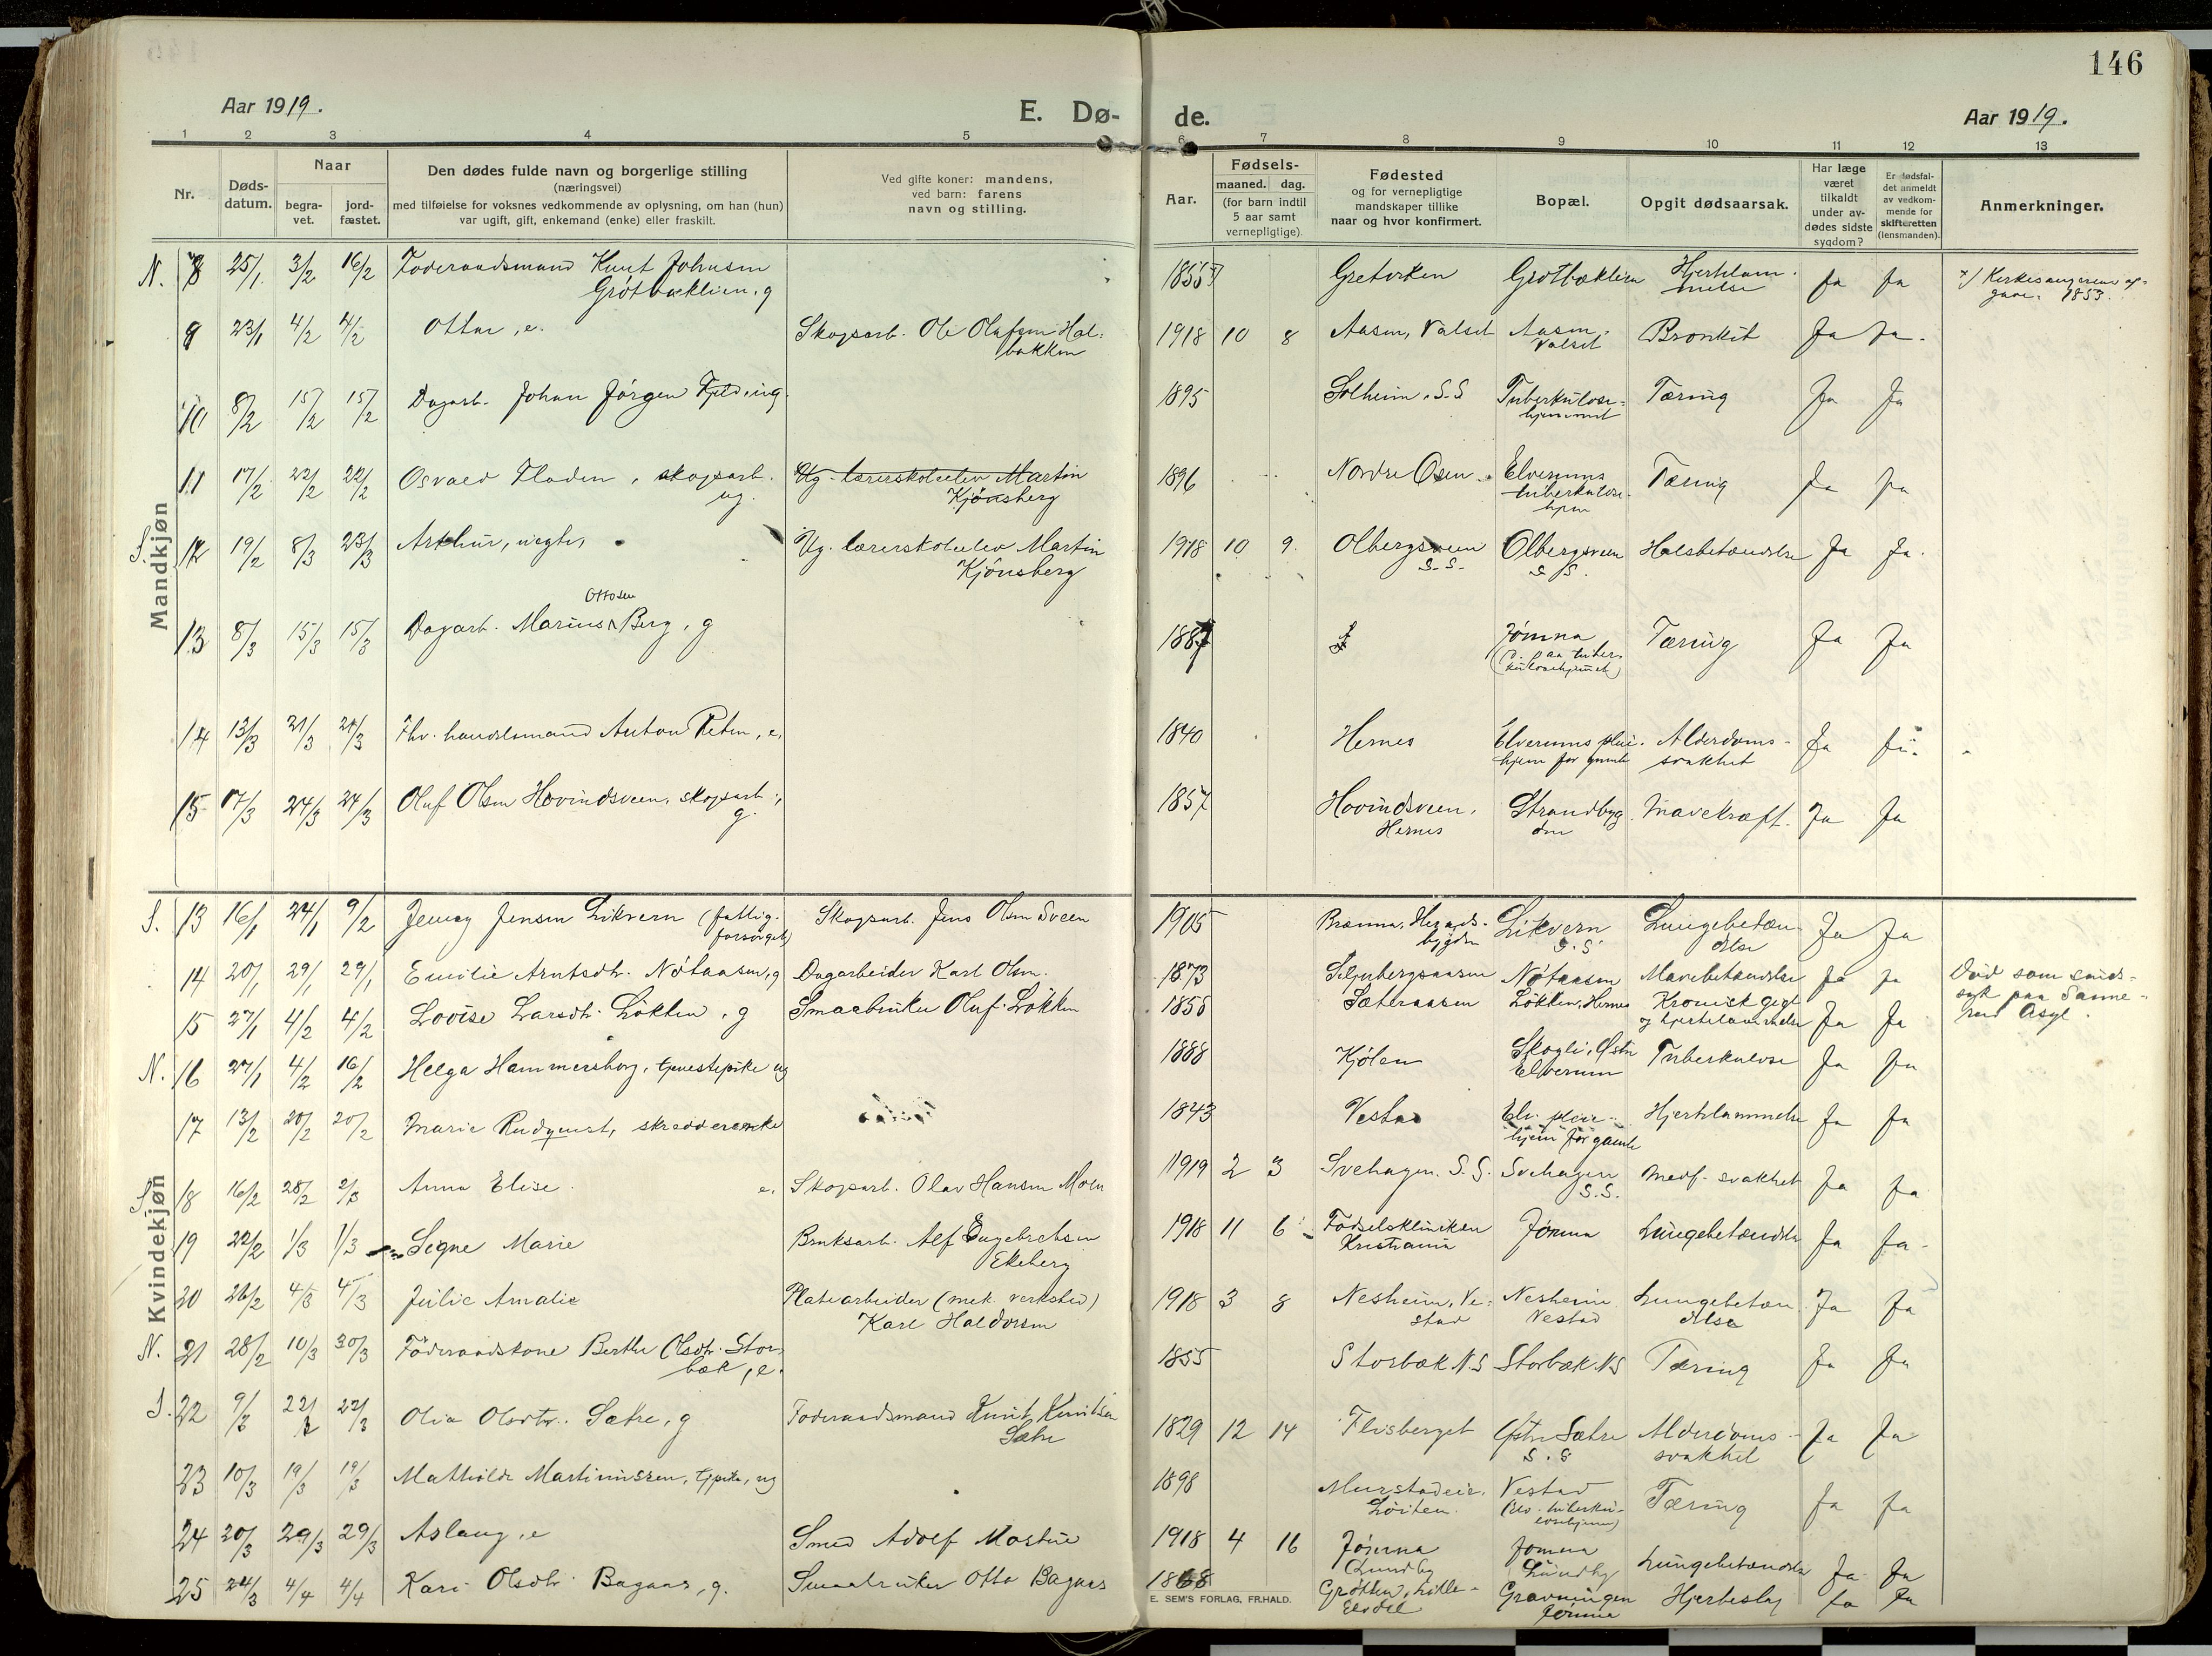 146
Aar 1919.
E. Dø-
de.
Aar 1919.
1 2 3 4 5 6 7 8 9 10 11 12 13
Nr.
Døds-
datum.
Naar
begra-
vet.
jord-
fæstet.
Den dødes fulde navn og borgerlige stilling
(næringsvei)
med tilføielse for voksnes vedkommende av oplysning, om han (hun)
var ugift, gift, enkemand (enke) eller fraskilt.
Ved gifte koner: mandens,
ved barn: farens
navn og stilling.
Aar.
Fødsels-
maaned. dag.
(for barn indtil
5 aar samt
vernepligtige).
Fødested
og for vernepligtige
mandskaper tillike
naar og hvor konfirmert.
Bopæl.
Opgit dødsaarsak.
Har læge
været
tilkaldt
under av-
dødes sidste
sygdom?
Er dødsfal-
det anmeldt
av vedkom-
mende for
skifteretten
(lensmanden).
Anmerkninger.
Mandkjøn
N. 8 25/1 3/2 16/2 Føderaadsmand Knut Johnsen 1855 Grøtbæklien Hjertelam-
Grøtbæklien, g melse Ja Ja 1853.
9 23/1 4/2 4/2 Ottar, e. Skogsarb. Ole Olafsen Hal-
bakken 1918 10 8 Aasen, Valset Aasen, Valset Bronkit Ja Ja.
10 8/2 15/2 15/2 Dagarb. Johan Jørgen 1895 Solheim, S.S Tuberkulose-
hjemmet Tæring Ja Ja
11 17/2 22/2 22/2 Osvald Floden, skogsarb.
ug. Ug. lærerskoleelev Martin
Kjønsberg 1896 Nordre Osen Elverums
tuberkulose-
hjem Tæring Ja Ja
S. 12 19/2 8/3 23/3 Arthur, uegte, Ug. lærerskoleelev Martin
Kjønsberg 1918 10 9. Olbergsveen
S.S. Olbergsveen
S.S. Halsbetændelse Ja Ja.
13 8/3 15/3 15/3 Dagarb. Marius Ottosen Berg, g 1887 Jømna
(d. paa tuber-
kulosehjemmet) Tæring Ja Ja
14 13/3 21/3 21/3 Fhv. handelsmand Anton Reten, e. 1840 Hernes Elverums pleie-
hjem for gamle Alderdoms-
svakhet Ja Ja.
15 17/3 24/3 24/3 Oluf Olsen Hovindsveen, skogsarb.,
g. 1857 Hovindsveen,
Hernes Strandbyg
den Mavekræft. Ja Ja
Kvindekjøn
S. 13 16/1 24/1 9/2 Jenny Jensen Likvern (fattig-
forsørget) Skogsarb. Jens Olsen Sveen 1905 Brænna, Herads-
bygden Likvern
S.S. Lungebetæn-
delse Ja Ja
14 20/1 29/1 29/1 Emilie Arntsdtr. Nøtaasen, g Dagarbeider Karl Olsen. 1873 Nøtaasen Mavebetændelse Ja Ja Død som sinds-
syk paa Sanne-
rud Asyl.
15 27/1 4/2 4/2 Lovise Larsdtr. Løkken, g Smaabruker Oluf Løkken 1858 Sæteraasen Løkken, Hernes Kronisk gigt
og hjertelammelse Ja Ja
N. 16 27/1 4/2 16/2 Helga Hammersborg, tjenestepike ug 1888 Kjølen Skogli, Østre
Elverum Tuberkulose Ja Ja
17 13/2 20/2 20/2 Marie Rudquist, skredderenke 1843 Vestad Elv. pleie-
hjem for gamle Hjertelammelse Ja Ja
S. 18 16/2 28/2 2/3 Anna Elise e. Skogsarb. Olav Hansen Moen 1919 2 3 Svehagen. S.S. Svehagen
S.S. Medf. svakhet Ja Ja
19 22/2 1/3 1/3 Signe Marie Bruksarb. Alf Engebretsen
Ekeberg 1918 11 6 Fødselskliniken
Kristiania Jømna Lungebetændelse Ja Ja
20 26/2 4/3 4/3 Julie Amalie Platearbeider (mek. verksted)
Karl Haldorsen 1918 3 8 Nesheim, Ve-
stad Nesheim
Vestad Lungebetæn-
delse Ja Ja
N. 21 28/2 10/3 30/3 Føderaadskone Berthe Olsdtr. Stor-
bæk, e. 1855 Storbæk N.S Storbæk N.S Tæring Ja Ja
S. 22 9/3 22/3 22/3 Olia Olsdtr. Sætre, g Føderaadsmand Knut Knutsen
Sætre 1829 12 14 Flisberget Østre Sætre
S.S Alderdoms-
svakhet Ja Ja
23 10/3 19/3 19/3 Mathilde Martinussen, tjpike, ug 1898 Løiten. Vestad
(Elv. tuberku-
losehjem) Tæring Ja Ja
24 20/3 29/3 29/3 Aslaug, e Smed Adolf Mostue 1918 4 16 Jømna
Lundby Jømna
Lundby Lungebetændelse Ja Ja
25 24/3 4/4 4/4 Kari Olsdtr. Bagaas, g. Smaabruker Otto Bagaas 1868 Grøtten, Lille-
Elvdal Gravningen
Jømna Hjerteslag Ja Ja
E. SEM'S FORLAG, FR.HALD.